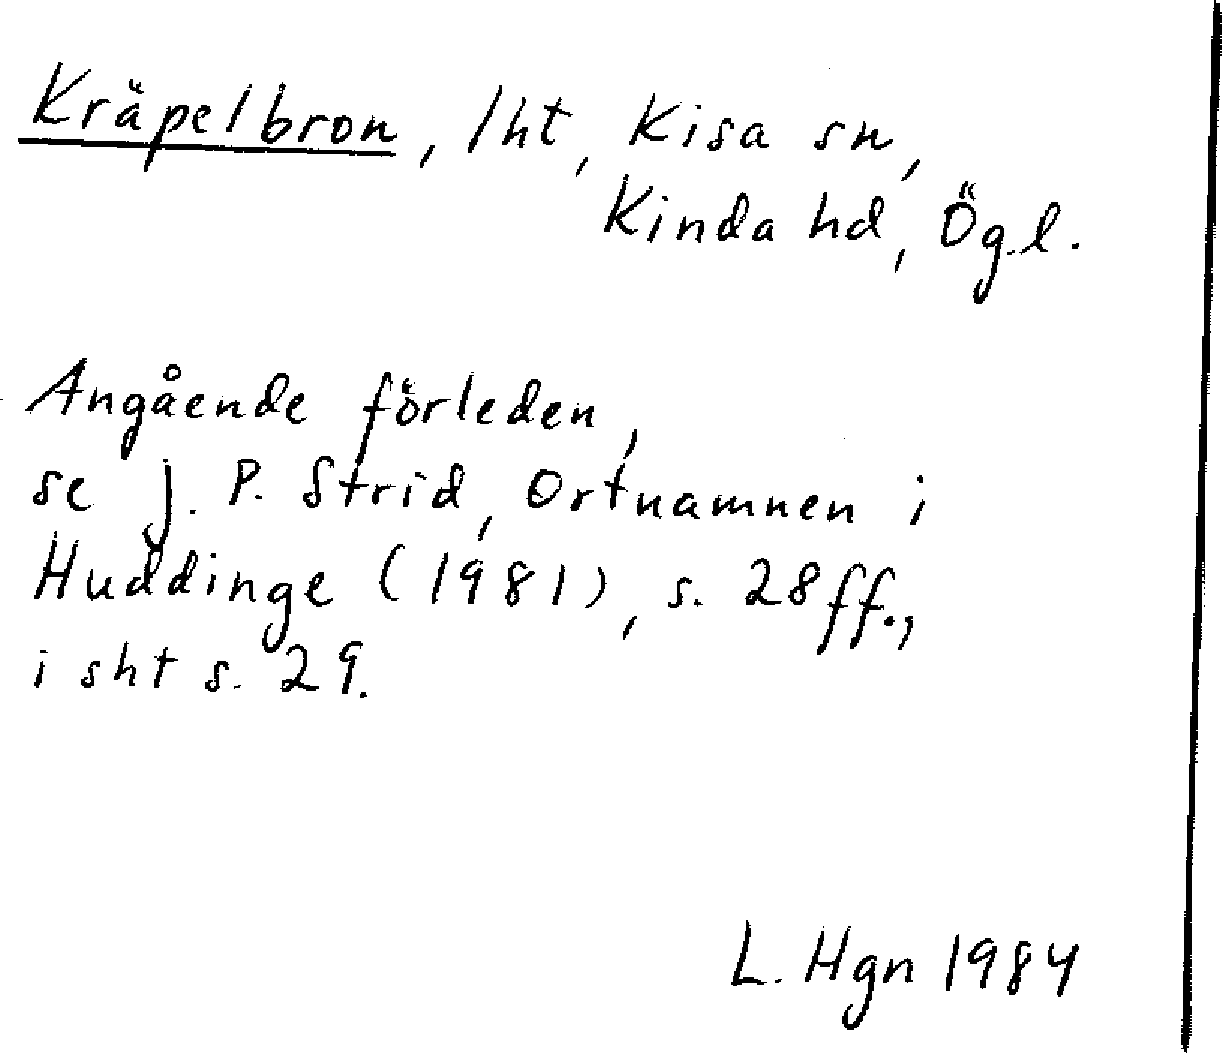 Kräpelbron, lht, Kisa sn,
Kinda hd, Ög.l.
Angående förleden,
se J. P. Strid, Ortnamnen i
Huddinge (1981), s. 28ff.,
i sht s. 29.
L. Hgn 1984